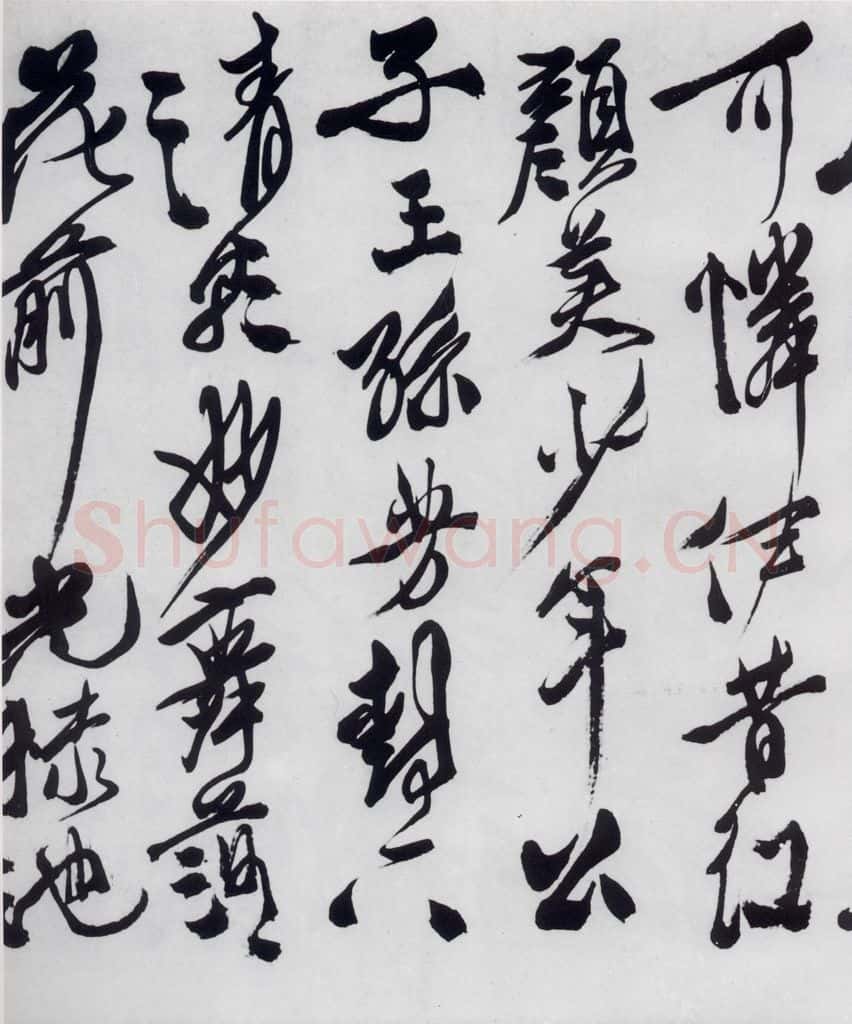 可憐伊昔紅
顏美少年公
子王孫芳樹下
清歌妙舞落
花前光祿池
Shufawang.CN